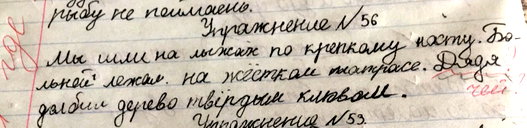 где
рыбу не поймаешь.
Упражнение №56
Мы шли на лыжах по крепкому насту. Бо-
льной лежал на жёстком матрасе. Дядя
долбил дерево твёрдым клювом.
Упражнение №59